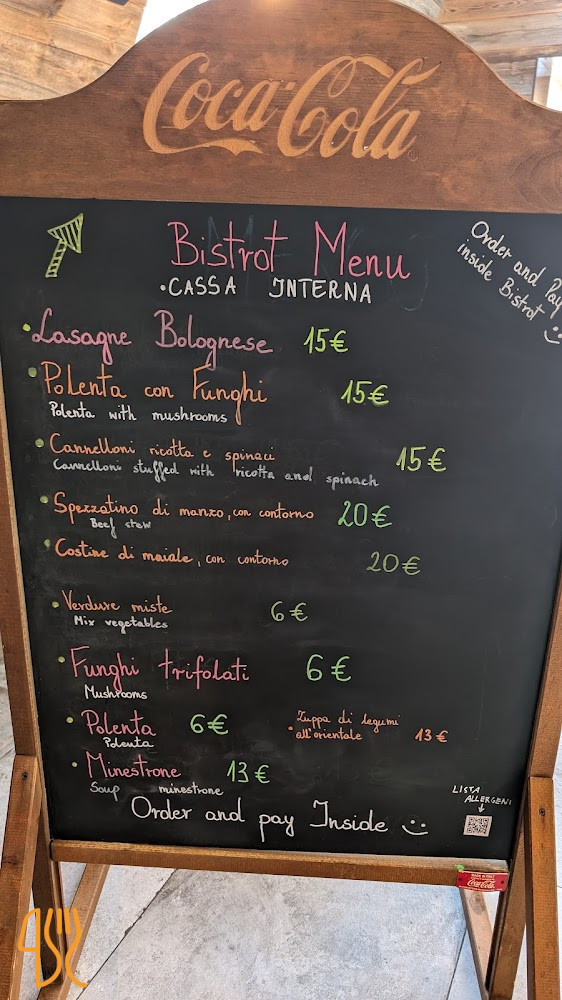 Coca-Cola
Bistrot Menu
•CASSA INTERNA
Order and Pay
inside Bistrot
•Lasagne Bolognese 15€
•Polenta con Funghi 15€
Polenta with mushrooms
•Cannelloni ricotta e spinaci 15€
Cannelloni stuffed with ricotta and spinach
•Spezzatino di manzo, con contorno 20€
Beef stew
•Costine di maiale, con contorno 20€
•Verdure miste 6€
Mix vegetables
•Funghi trifolati 6€
Mushrooms
•Polenta 6€
Polenta
•Zuppa di legumi
all'orientale 13€
•Minestrone 13€
Soup minestrone
LISTA
ALLERGENI
Order and pay Inside
Coca-Cola